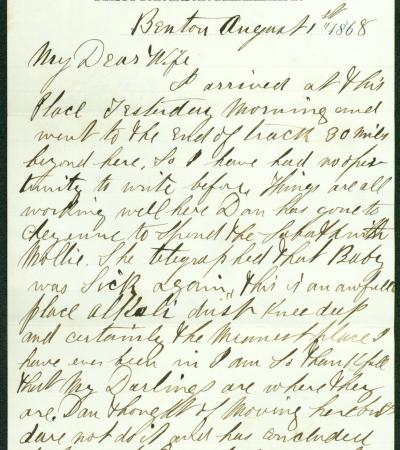 Benton August 1st 1868
My Dear Wife
I arrived at this
Place Yesterday Morning and
went to the End of track 30 miles
beyond here, So I have had no oper-
tunity to write before, Things are all
working well here Dan has gone to
Cheyenne to Spend the Sabath with
Mollie. She telegraphed that Baby
was Sick Again, this is an awful
place alkali dust Knee deep
and certainly the Meanest place I
have ever been in I am So thankfull
that My Darlings are where they
are, Dan thought of Moving here but
dare not do it and has concluded